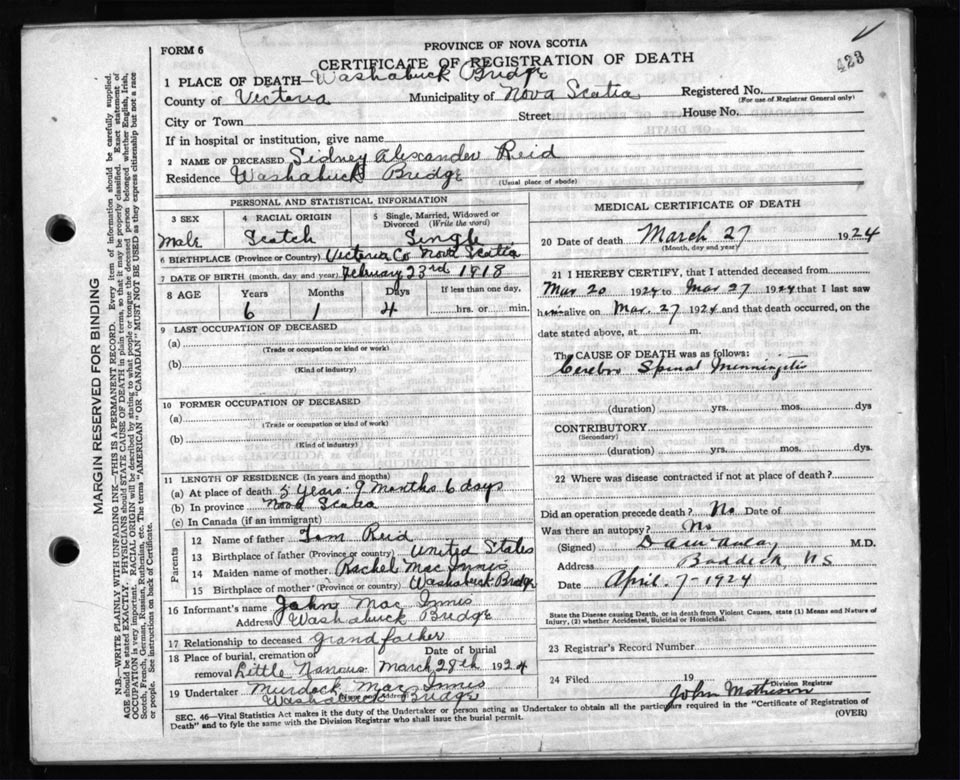 FORM 6
PROVINCE OF NOVA SCOTIA
CERTIFICATE OF REGISTRATION OF DEATH
423
1 PLACE OF DEATH—Washabuck Bridge
County of Victoria Municipality of Nova Scatia Registered No.
(For use of Registrar General only)
City or Town Street House No.
If in hospital or institution, give name
2 NAME OF DECEASED Sidney Alexander Reid
Residence Washabuck Bridge (Usual place of abode)
PERSONAL AND STATISTICAL INFORMATION
3 SEX 4 RACIAL ORIGIN 5 Single, Married, Widowed or Divorced (Write the word)
Male Scotch Single
6 BIRTHPLACE (Province or Country) Victoria Co Nova Scatia
7 DATE OF BIRTH (month, day and year) February 23rd 1818
8 AGE Years Months Days If less than one day,
6 1 4 hrs. or min.
9 LAST OCCUPATION OF DECEASED
(a)
(Trade or occupation or kind of work)
(b)
(Kind of industry)
10 FORMER OCCUPATION OF DECEASED
(a)
(Trade or occupation or kind of work)
(b)
(Kind of industry)
11 LENGTH OF RESIDENCE (In years and months)
(a) At place of death 5 years 9 months 6 days
(b) In province Nova Scatia
(c) In Canada (if an immigrant)
Parents
12 Name of father Tom Reid
13 Birthplace of father (Province or country) United States
14 Maiden name of mother Rachel Mac Innis
15 Birthplace of mother (Province or country) Washabuck Bridge
16 Informant's name John Mac Innis
Address Washabuck Bridge
17 Relationship to deceased Grandfather
18 Place of burial, cremation or removal Little Narrows Date of burial March 28th 1924
19 Undertaker Murdock Mac Innis
Washabuck Bridge
MEDICAL CERTIFICATE OF DEATH
20 Date of death March 27 1924
(Month, day and year)
21 I HEREBY CERTIFY, that I attended deceased from
Mar 20 1924 to Mar 27 1924 that I last saw
him alive on Mar. 27 1924 and that death occurred, on the
date stated above, at m.
The CAUSE OF DEATH was as follows:
Cerebro Spinal Menningitis
(duration) yrs. mos. dys
CONTRIBUTORY
(Secondary)
(duration) yrs. mos. dys.
22 Where was disease contracted if not at place of death?
Did an operation precede death? No Date of
Was there an autopsy? No
(Signed) M.D.
Address Baddeck, NS
Date April. 7-1924
State the Disease causing Death, or in death from Violent Causes, state (1) Means and Nature of
Injury, (2) whether Accidental, Suicidal or Homicidal.
23 Registrar's Record Number
24 Filed 19
Division Registrar
John
SEC. 46—Vital Statistics Act makes it the duty of the Undertaker or person acting as Undertaker to obtain all the particulars required in the "Certificate of Registration of
Death" and to fyle the same with the Division Registrar who shall issue the burial permit. (OVER)
MARGIN RESERVED FOR BINDING
N.B.—WRITE PLAINLY WITH UNFADING INK—THIS IS A PERMANENT RECORD. Every item of information should be carefully supplied.
AGE should be stated EXACTLY. PHYSICIANS should STATE CAUSE OF DEATH in plain terms, so that it may be properly classified. Exact statement of
OCCUPATION is very important. RACIAL ORIGIN will be described by stating to what people or tongue the deceased person belonged whether English, Irish,
Scotch, French, German, Russian, Ruthenian, etc. The terms "AMERICAN" OR "CANADIAN" MUST NOT BE USED as they express citizenship but not a race
or people. See instructions on back of Certificate.